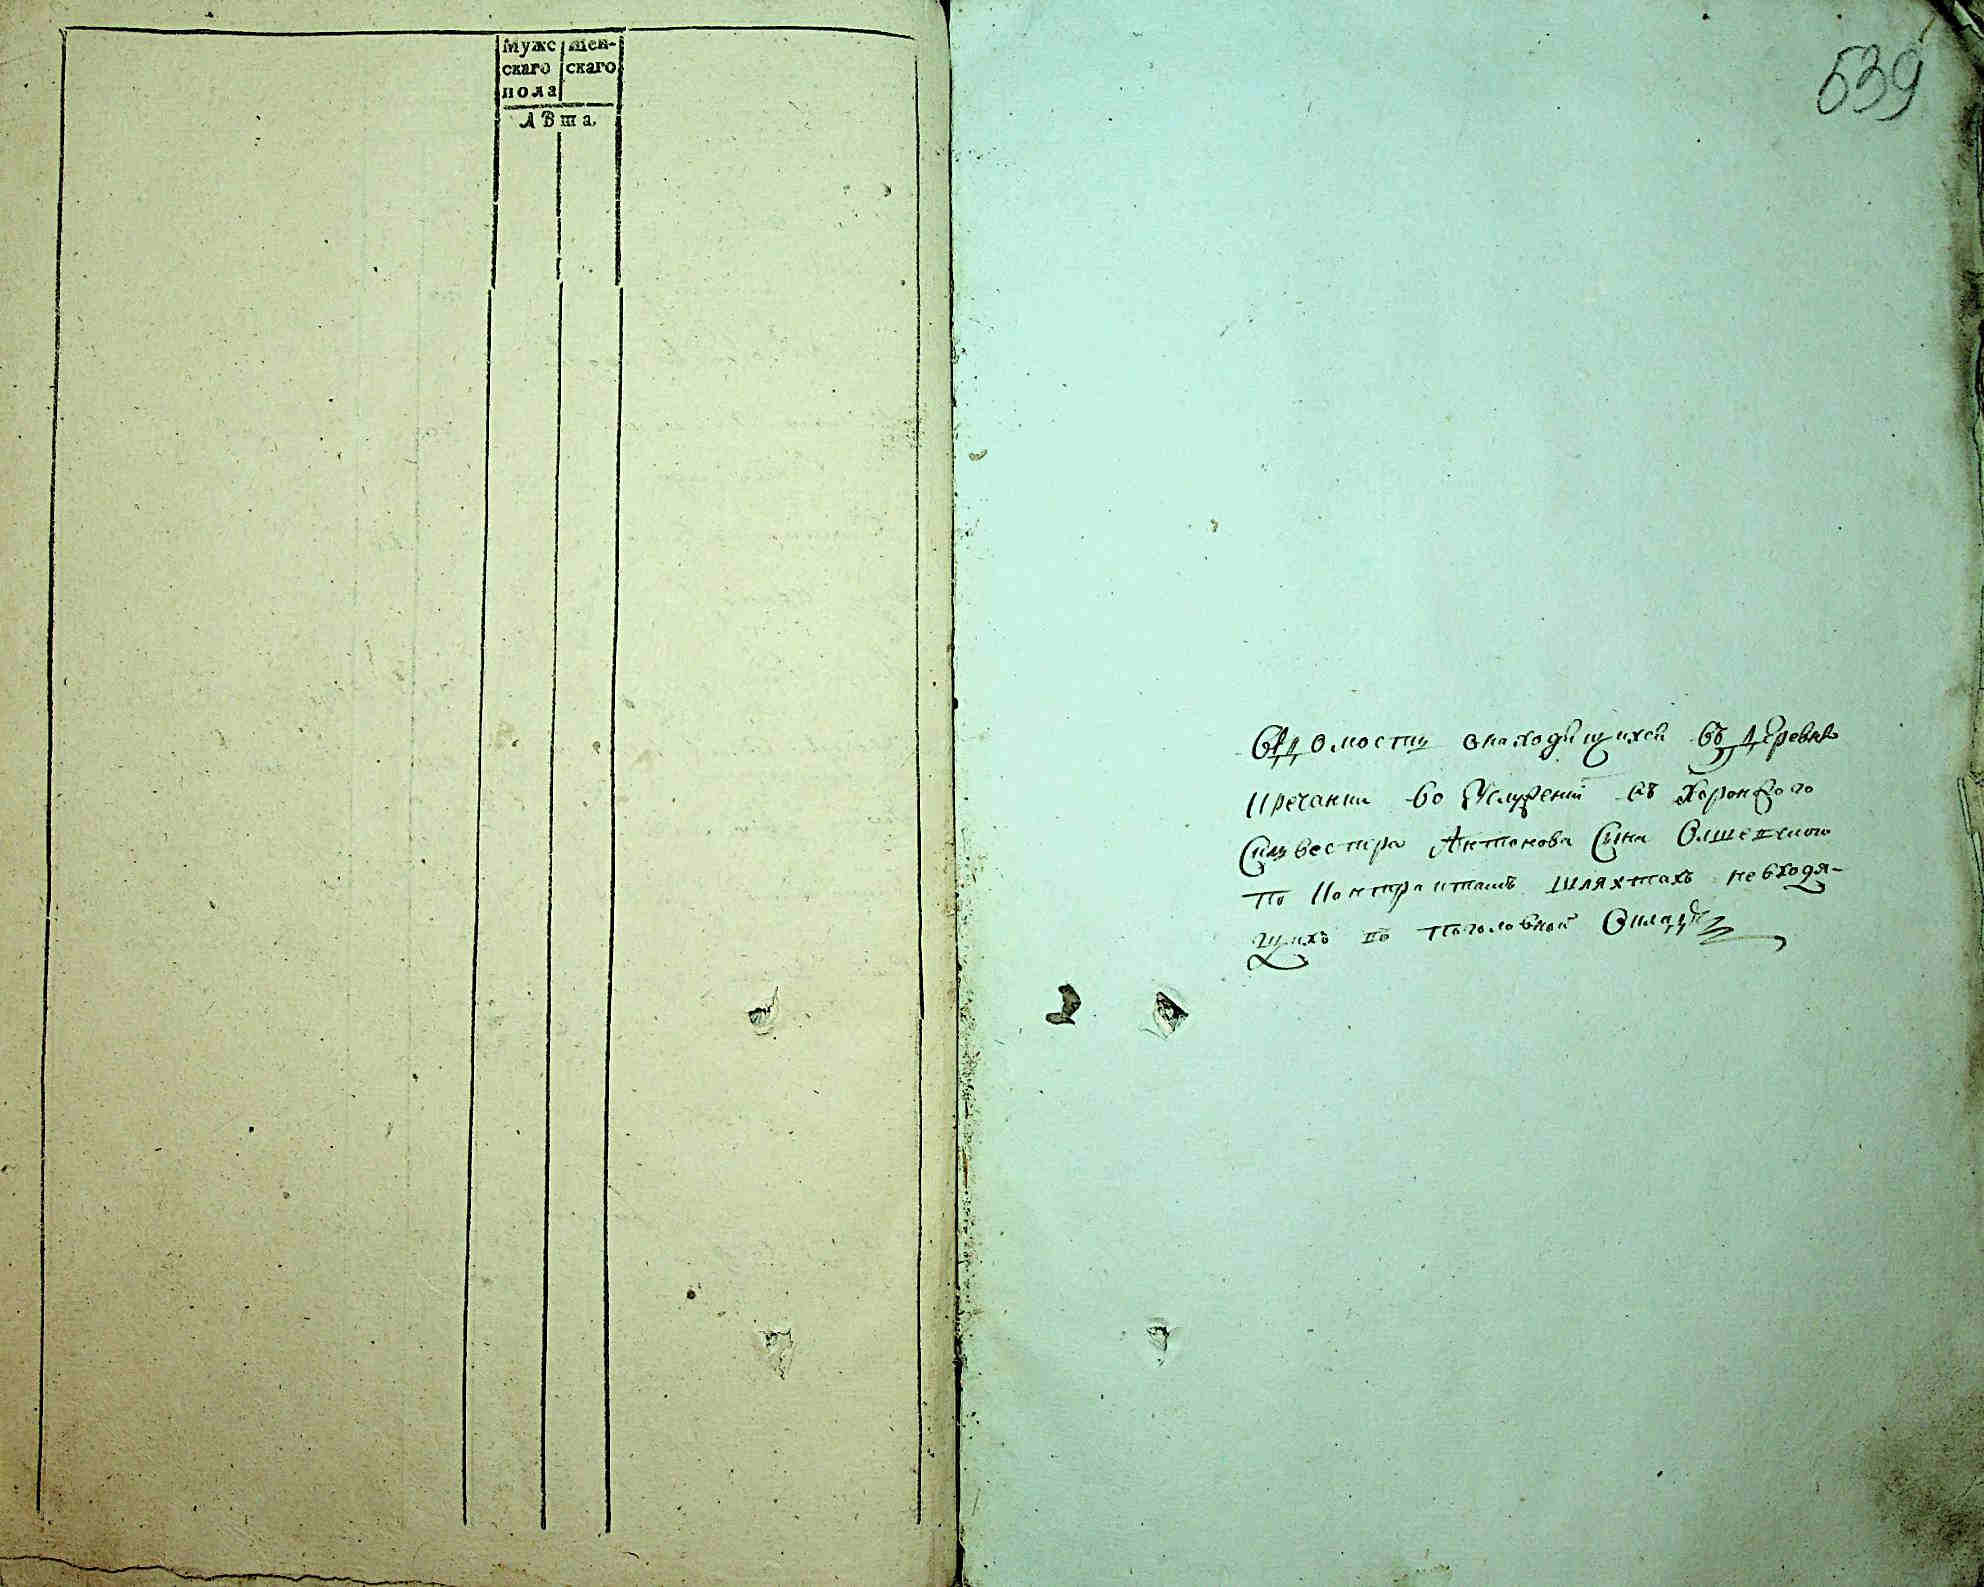 Мужс жен-
скаго скаго
пола
лѣта.
539
Вѣдомости онаходящихся въ деревнѣ
Кречании во Услужении въ Хоронжого
Силвестра Антонова Сына Олшевского
по Контрактамъ шляхтахъ невходя-
щихъ въ поголовной Окладъ